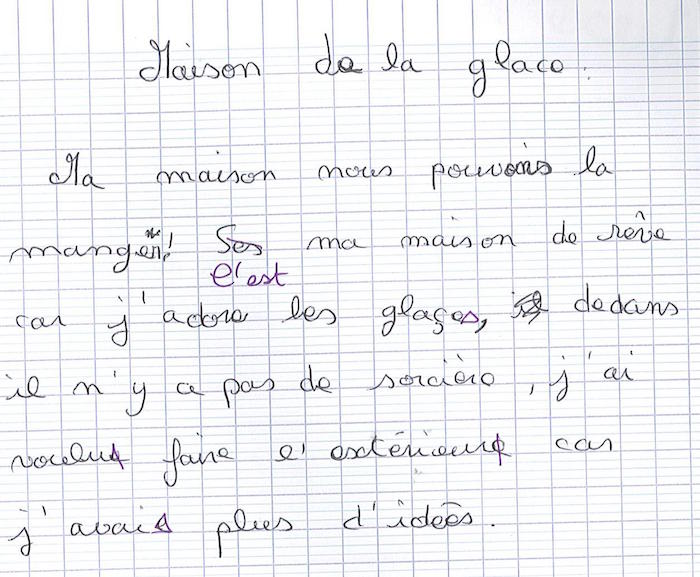 Maison de la glace.
Ma maison nous pouvons la
manger! Ses ma maison de rêve
C'est
car j'adore les glaçes, dedans
il n'y a pas de sorcière, j'ai
voulut faire l'extérieur car
j'avais plus d'idées.